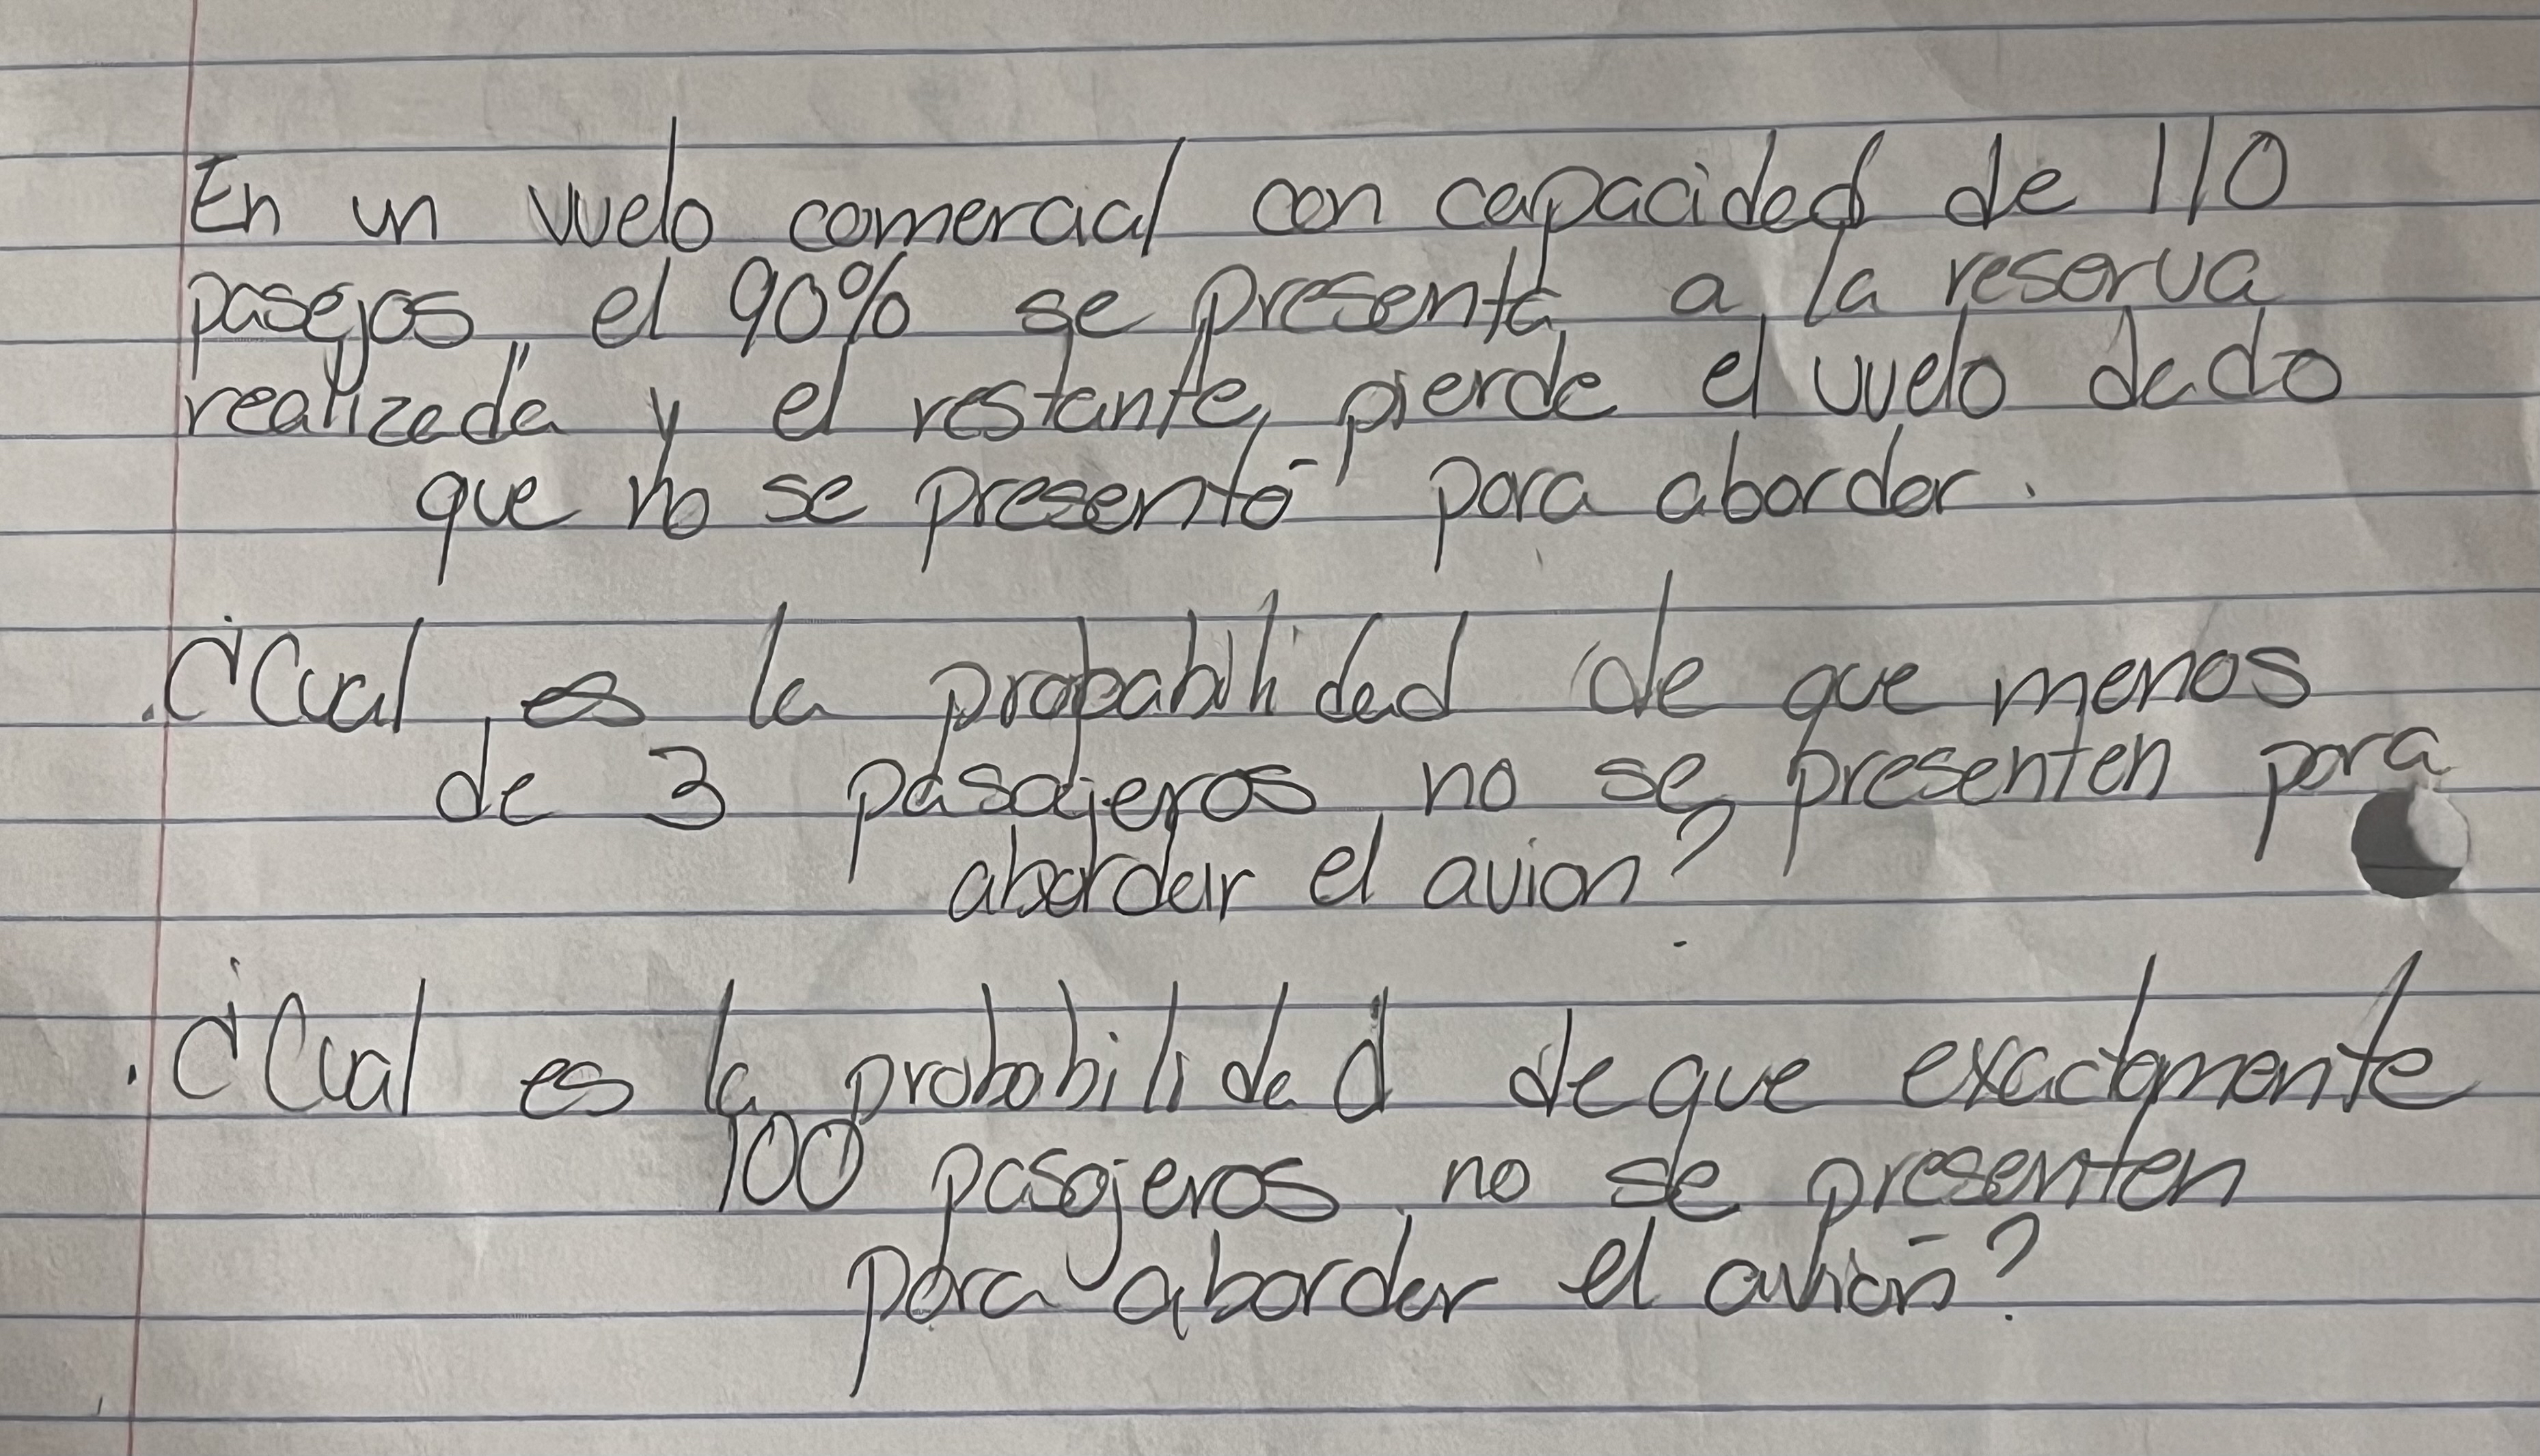 En un vuelo comercial con capacidad de 110
pasejos el 90% se presenta a la reserva
realizada y el restante, pierde el vuelo dado
que no se presentó para abordar.
. ¿Cual es la probabilidad de que menos
de 3 pasajeros no se presenten para
abordar el avion?
. ¿Cual es la probabilidad de que exactamente
100 pasajeros no se presenten
para abordar el avión?